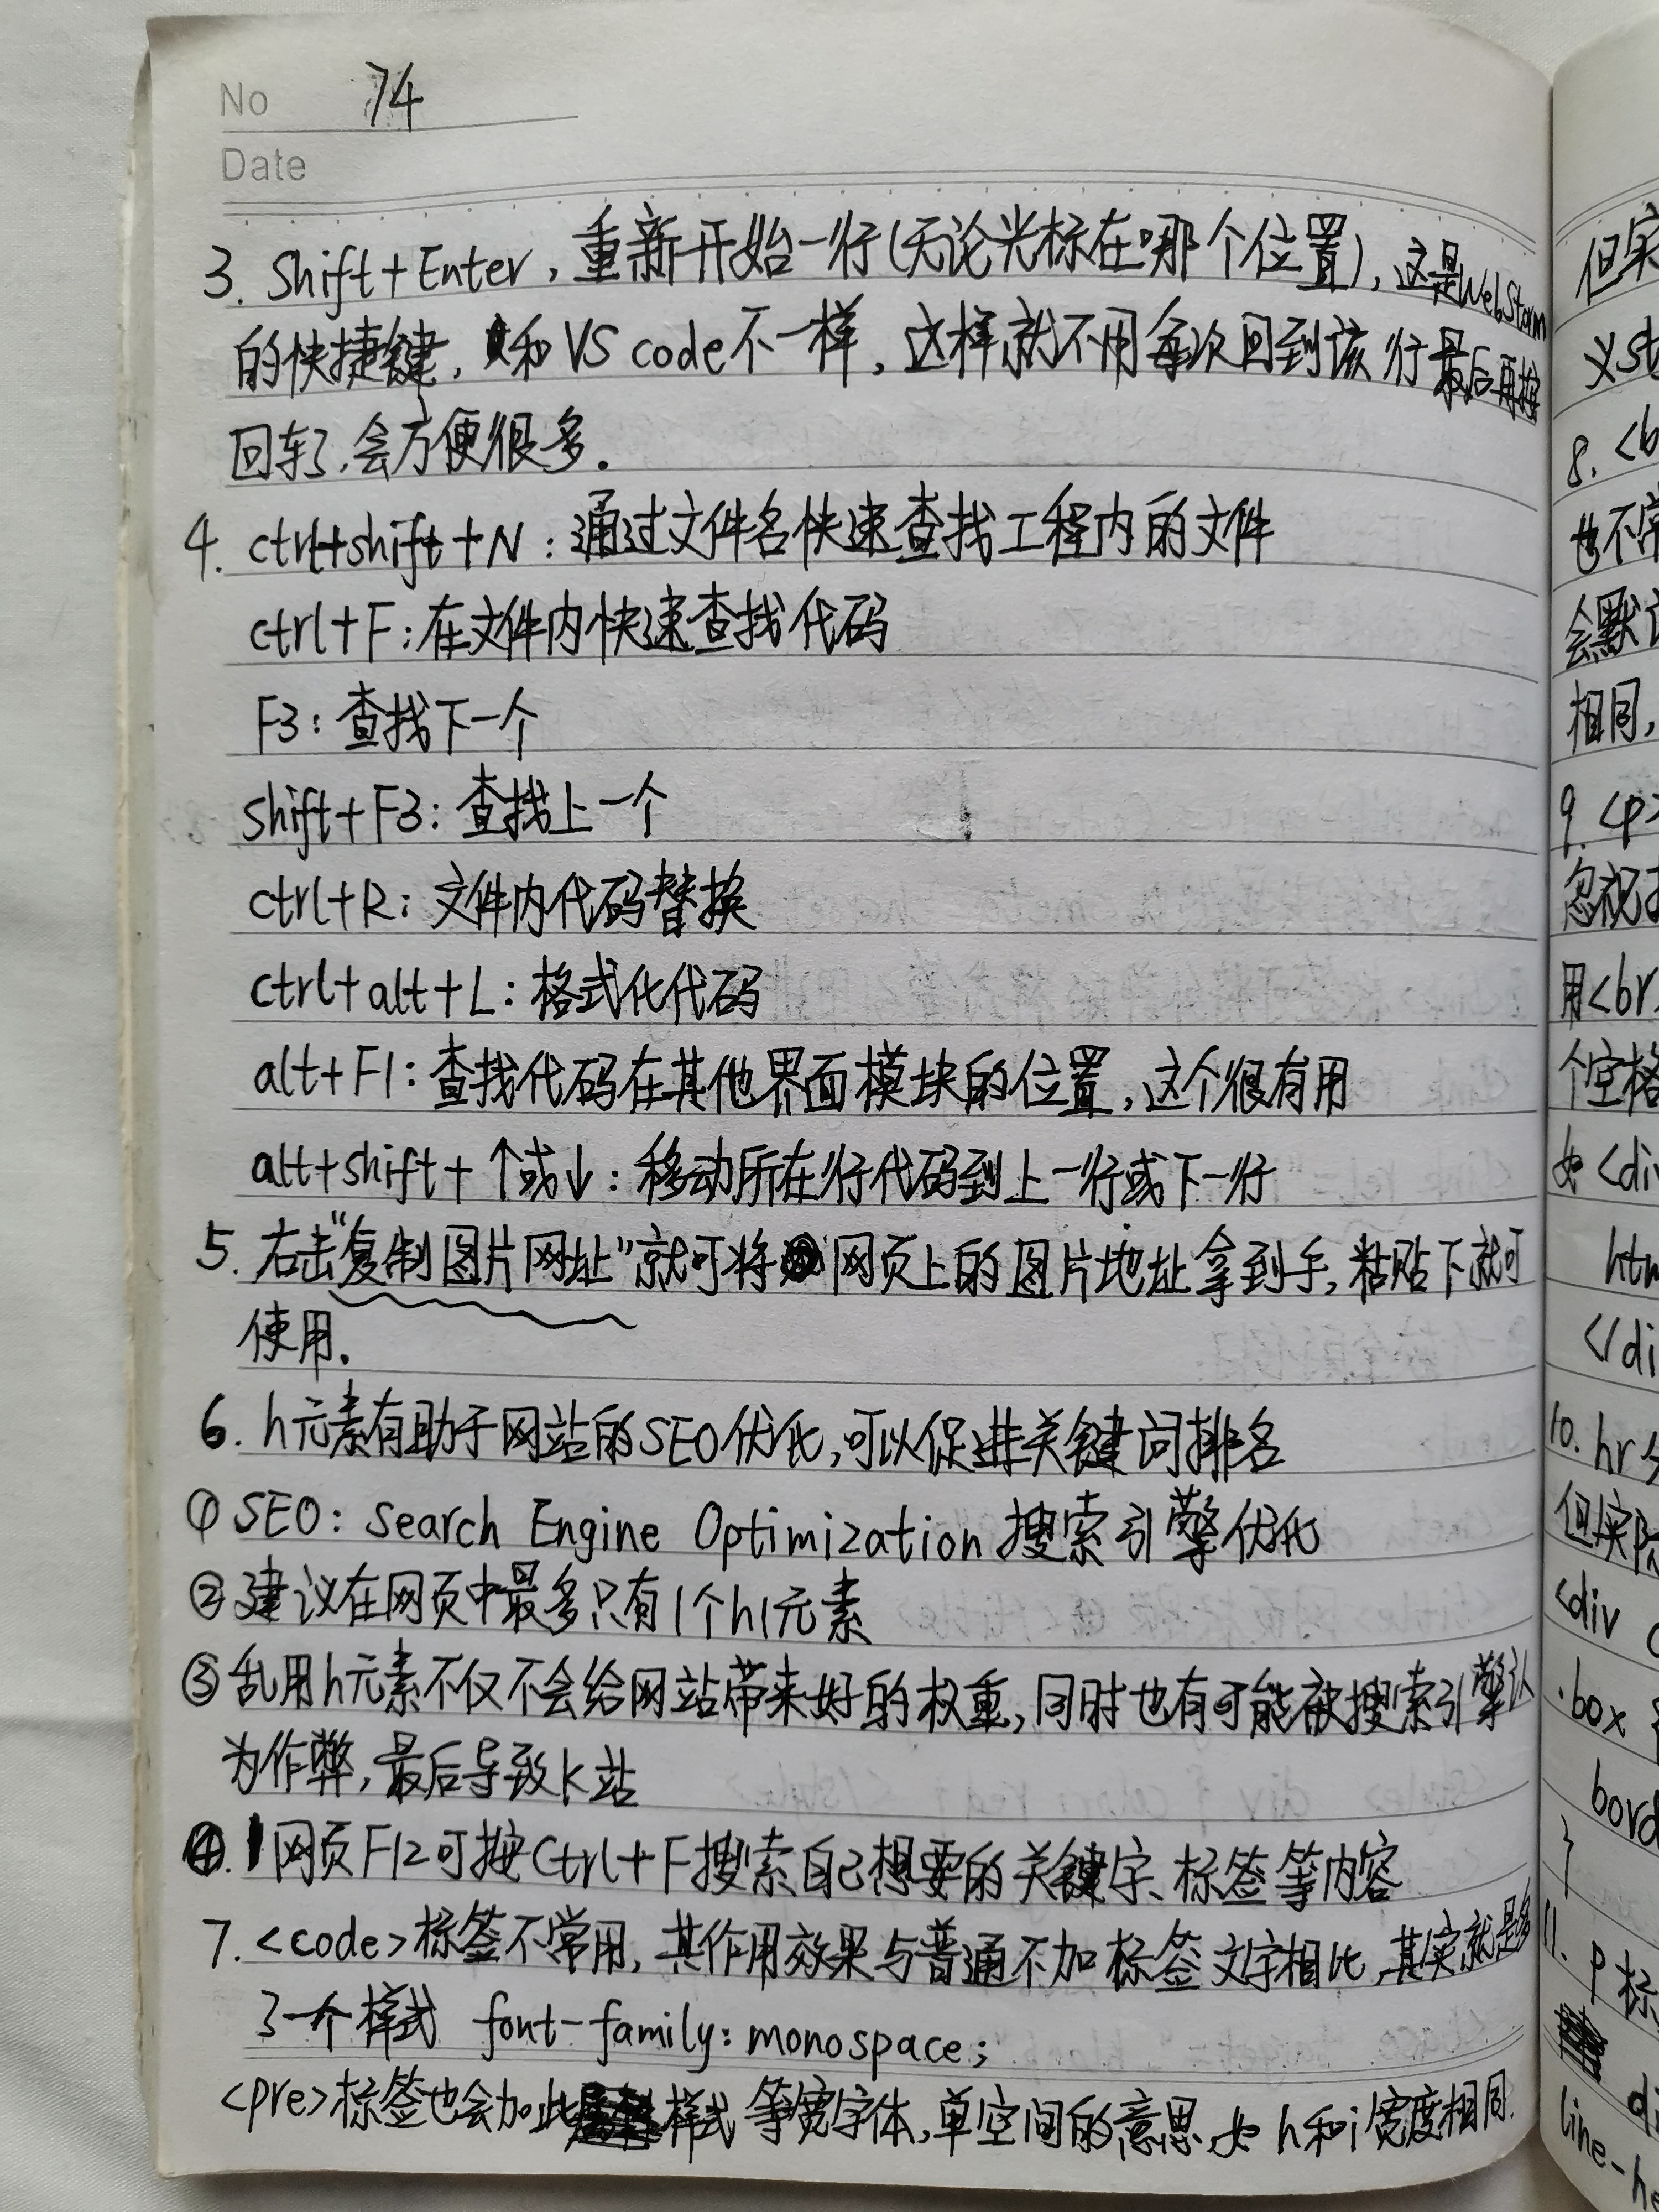 No 74
Date
3. Shift+Enter，重新开始一行(无论光标在哪个位置)，这是WebStorm
的快捷键，和VS code不一样，这样就不用每次回到该行最后再按
回车了，会方便很多.
4. ctrl+shift+N：通过文件名快速查找工程内的文件
ctrl+F：在文件内快速查找代码
F3：查找下一个
shift+F3：查找上一个
ctrl+R：文件内代码替换
ctrl+alt+L：格式化代码
alt+F1：查找代码在其他界面模块的位置，这个很有用
alt+shift+↑或↓：移动所在行代码到上一行或下一行
5. 右击"复制图片网址"就可将网页上的图片地址拿到手，粘贴下就可
使用.
6. h元素有助于网站的SEO优化，可以促进关键词排名
①SEO：Search Engine Optimization 搜索引擎优化
②建议在网页中最多只有1个h1元素
③乱用h元素不仅不会给网站带来好的权重，同时也有可能被搜索引擎认
为作弊，最后导致K站
④.网页F12可按Ctrl+F搜索自己想要的关键字、标签等内容
7. <code>标签不常用，其作用效果与普通不加标签文字相比，其实就是多
了一个样式 font-family: monospace;
<pre>标签也会加此样式 等宽字体，单空间的意思，如 h和i宽度相同.
但实
义st
8. <b
也不常
会默认
相同，
9. <p>
忽视
用<br>
个空格
如<div
htm
</di
10. hr
但实际
<div c
.box {
bord
}
11. p标
di
line-he